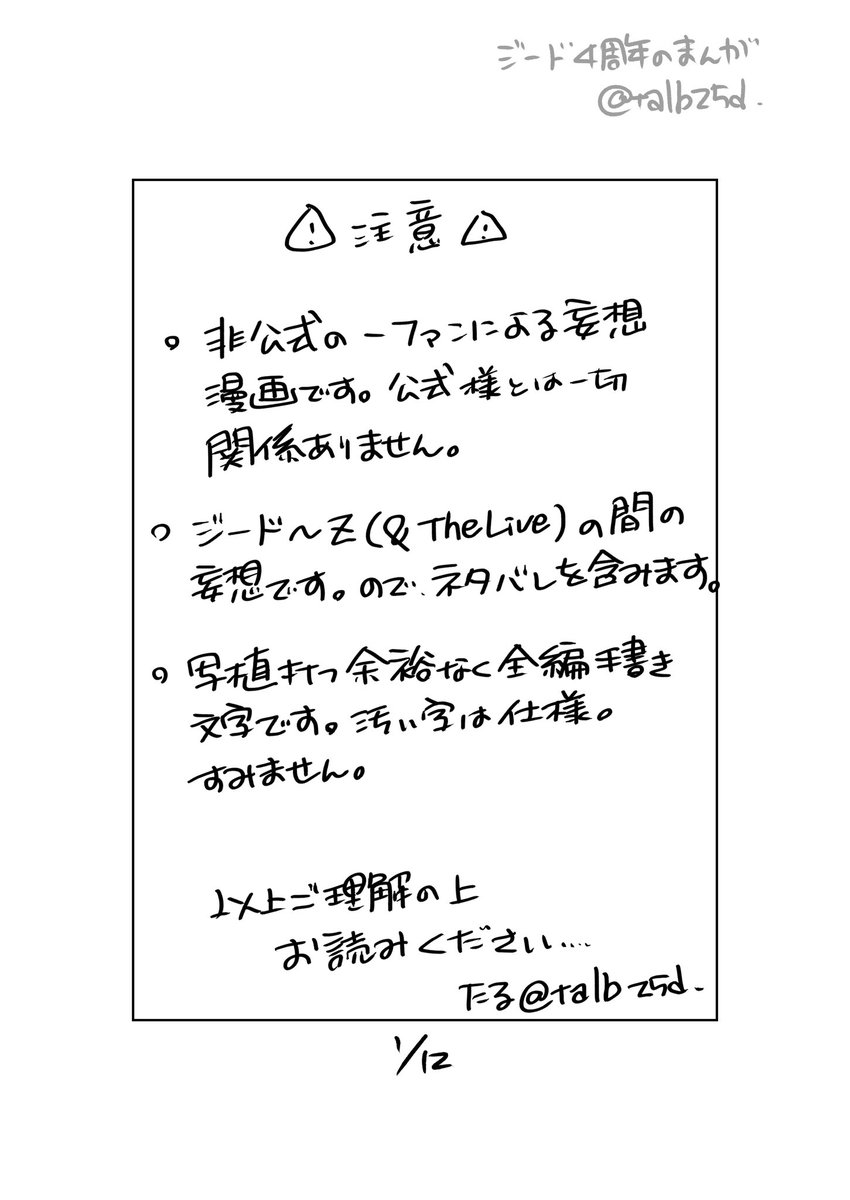 ジード4周年のまんが
@talbz5d.
⚠注意⚠
○ 非公式の一ファンによる妄想
漫画です。公式様とは一切
関係ありません。
○ ジード～Z(& The Live)の間の
妄想です。ので、ネタバレを含みます。
○ 写植打つ余裕なく全編手書き
文字です。汚い字は仕様。
すみません。
以上ご理解の上
お読みください....
たる@talbz5d.
1/12